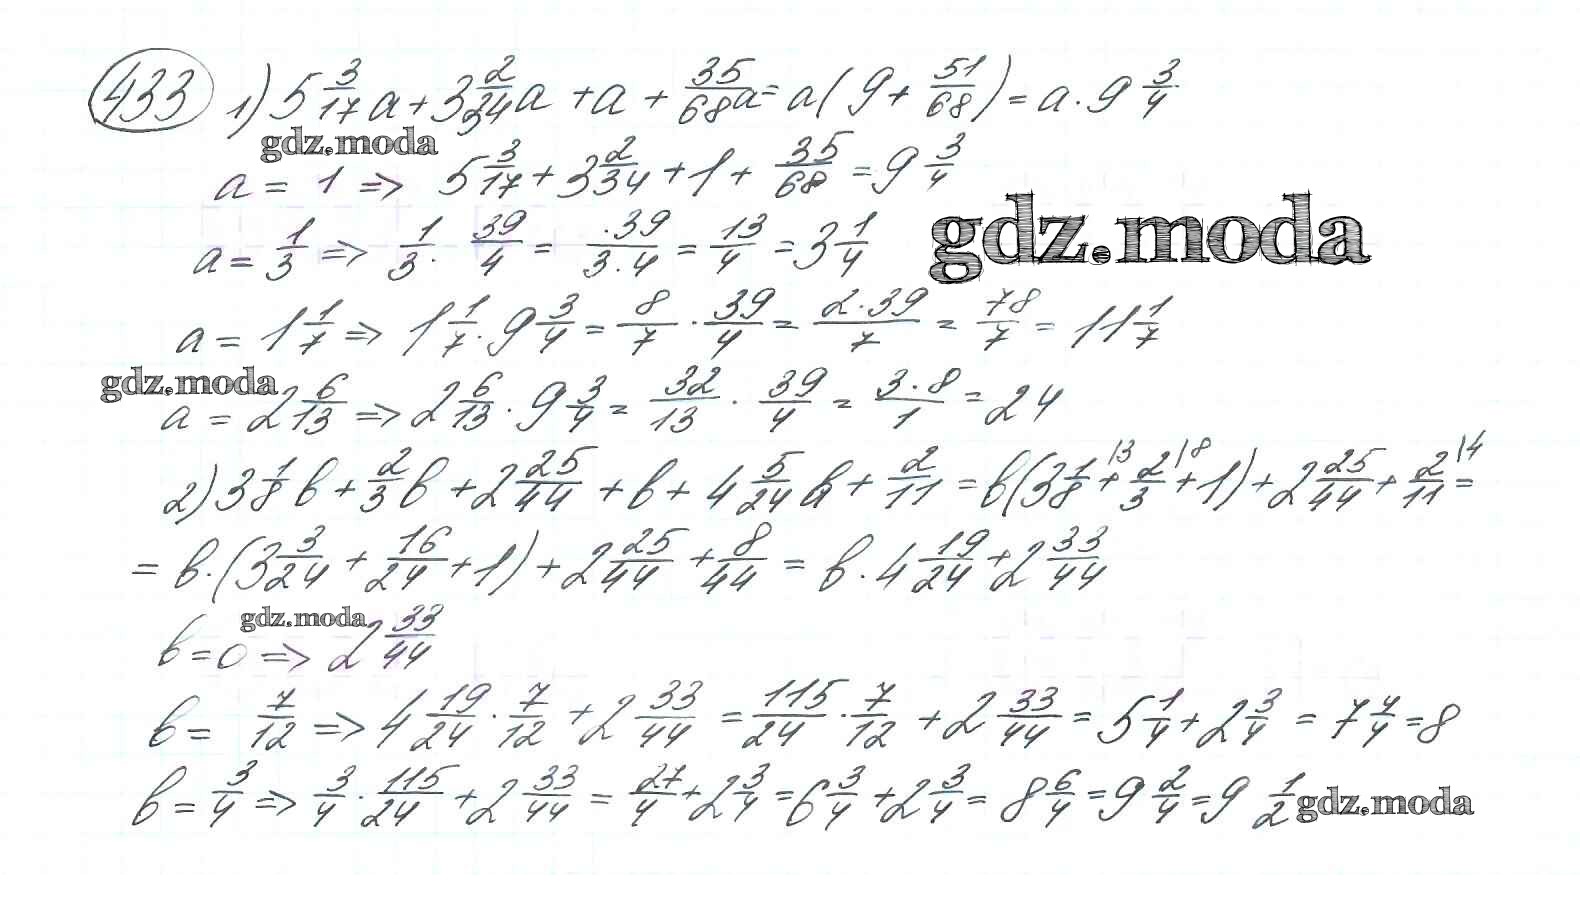 433 1) 5 3/17 a + 3 2/34 a + a + 35/68 a = a(9 + 51/68) = a · 9 3/4
gdz.moda
a = 1 => 5 3/17 + 3 2/34 + 1 + 35/68 = 9 3/4
gdz.moda
a = 1/3 => 1/3 · 39/4 = ·39/3·4 = 13/4 = 3 1/4
a = 1 1/7 => 1 1/7 · 9 3/4 = 8/7 · 39/4 = 2·39/7 = 78/7 = 11 1/7
gdz.moda
a = 2 6/13 => 2 6/13 · 9 3/4 = 32/13 · 39/4 = 3·8/1 = 24
2) 3 1/8 b + 2/3 b + 2 25/44 + b + 4 5/24 b + 2/11 = b(3 1/8 |3 + 2/3 |8 + 1) + 2 25/44 + 2/11 |4 =
= b · (3 3/24 + 16/24 + 1) + 2 25/44 + 8/44 = b · 4 19/24 + 2 33/44
gdz.moda
b = 0 => 2 33/44
b = 7/12 => 4 19/24 · 7/12 + 2 33/44 = 115/24 · 7/12 + 2 33/44 = 5 1/4 + 2 3/4 = 7 4/4 = 8
b = 3/4 => 3/4 · 115/24 + 2 33/44 = 27/4 + 2 3/4 = 6 3/4 + 2 3/4 = 8 6/4 = 9 2/4 = 9 1/2
gdz.moda